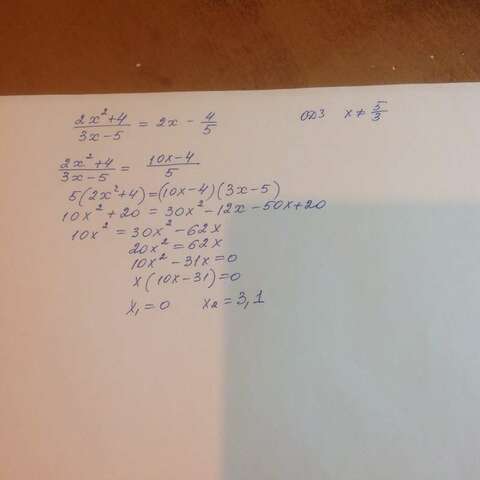 (2x²+4)/(3x-5) = 2x - 4/5 ОДЗ x ≠ 5/3
(2x²+4)/(3x-5) = (10x-4)/5
5(2x²+4)=(10x-4)(3x-5)
10x²+20 = 30x²-12x-50x+20
10x² = 30x²-62x
20x² = 62x
10x² - 31x = 0
x(10x-31)=0
x₁ = 0 x₂ = 3,1